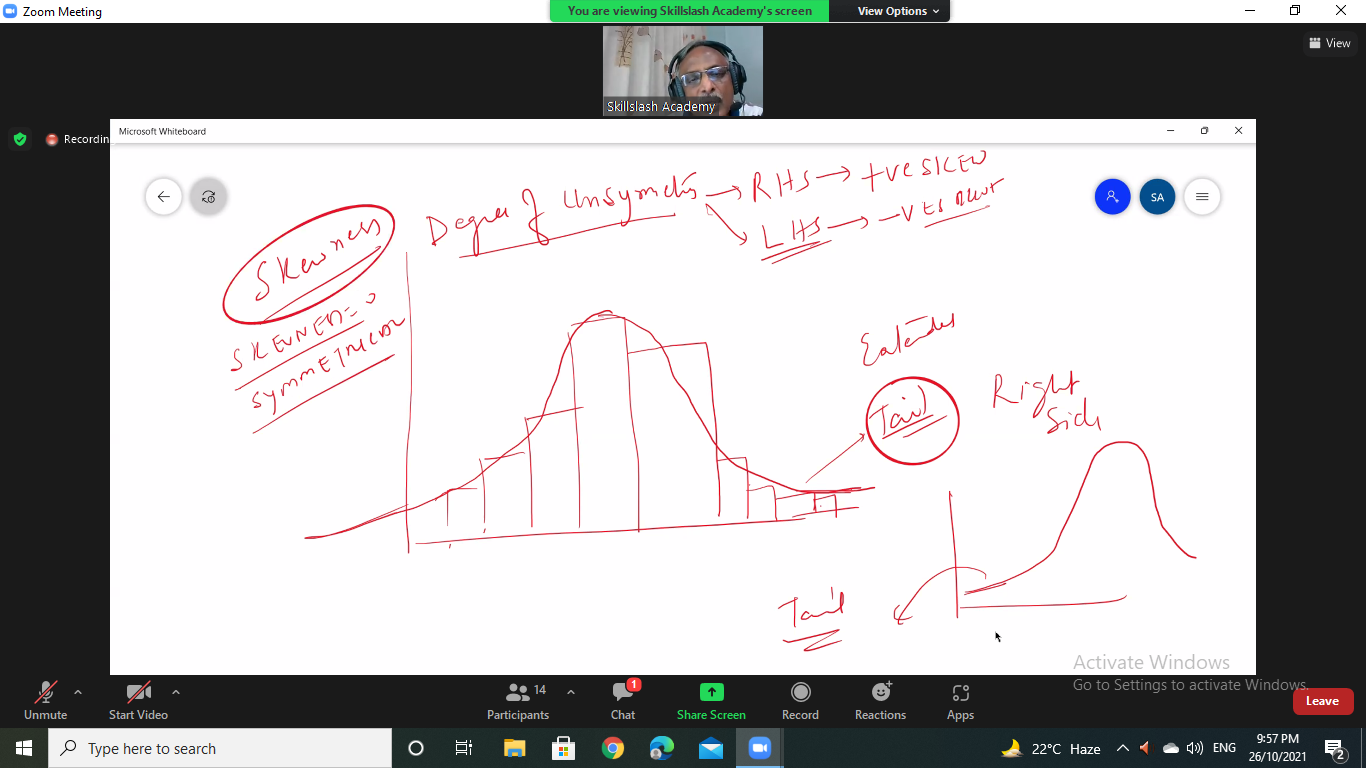 Zoom Meeting
You are viewing Skillslash Academy's screen
View Options
View
Skillslash Academy
Recording
Microsoft Whiteboard
SA
Degree of Unsymetris → RHS → +ve SKEW
LHS → -VE
Skewness
SKEWNED=0
SYMMETRICAL
Extended
Tail
Right
Side
Tail
Activate Windows
Go to Settings to activate Windows.
Unmute
Start Video
14
Participants
1
Chat
Share Screen
Record
Reactions
Apps
Leave
Type here to search
22°C Haze
ENG
9:57 PM
26/10/2021
2